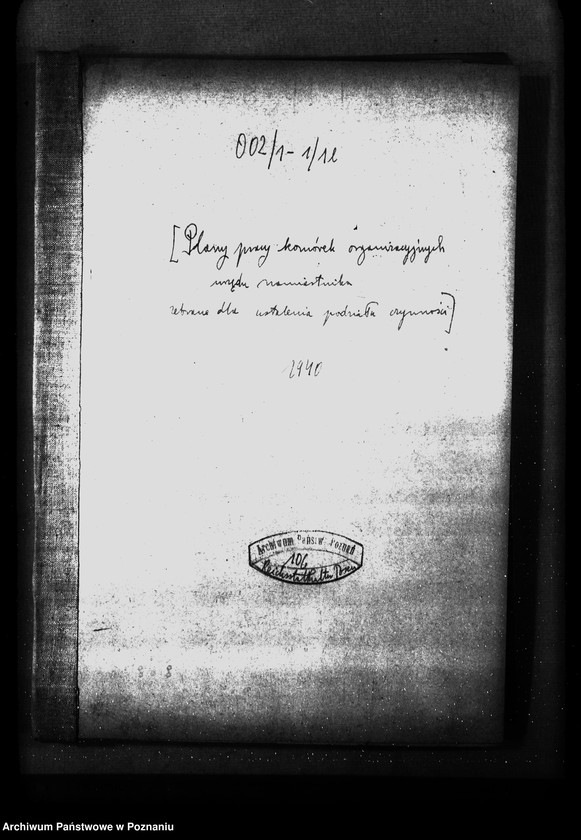 002/1-1/11
[Plany pracy komórek organizacyjnych
urzędu namiestnika
zebrane dla ustalenia podziału czynności]
1940
Archiwum Państw. Poznań
106
Archiwum Państwowe w Poznaniu